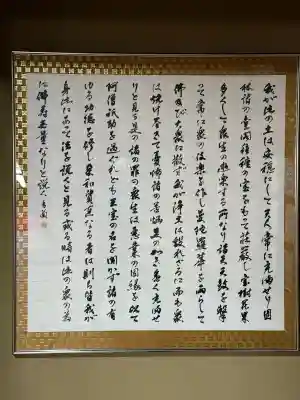 我が此の土は安穏にして天人常に充満せり園
林諸の堂閣種種の寳をもって荘厳し寳樹花果
多くして衆生の遊楽する所なり諸天天鼓を撃
って常に衆の伎楽を作し曼陀羅華を雨らして
佛及び大衆に散ず我が浄土は毀れざるに而も衆
は焼け盡きて憂怖諸の苦悩是の如き悉く充満せ
りと見る是の諸の罪の衆生は悪業の因縁を以て
阿僧祇劫を過ぐれども三寳の名を聞かず諸の有
ゆる功徳を修し柔和質直なる者は則ち皆我が
身此にあって法を説くと見る或る時は此の衆の為
に佛寿無量なりと説く